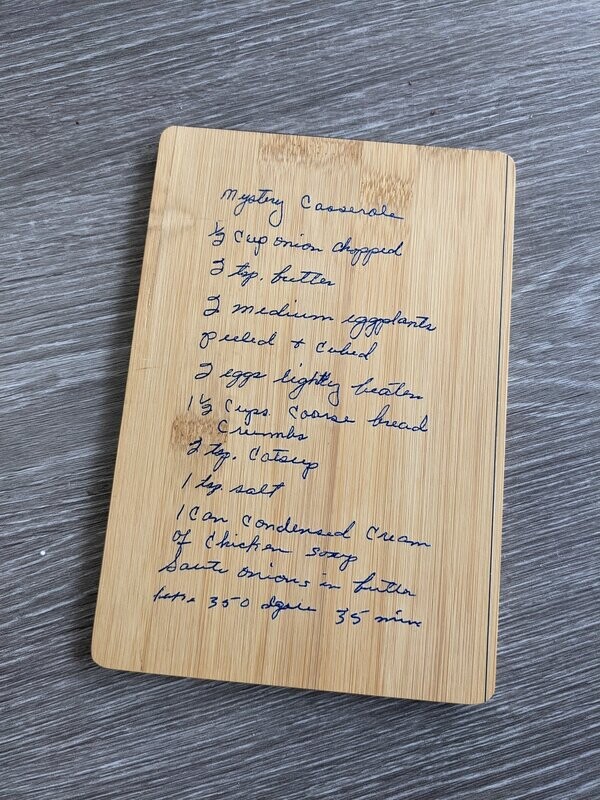 Mystery Casserole
1/2 Cup onion chopped
2 tsp. butter
2 medium eggplants
peeled + cubed
2 eggs lightly beaten
1 1/2 Cups. Coarse bread
Crumbs
2 tsp. Catsup
1 tsp. salt
1 Can Condensed Cream
of Chicken soup
Saute onions in butter
350 35 min